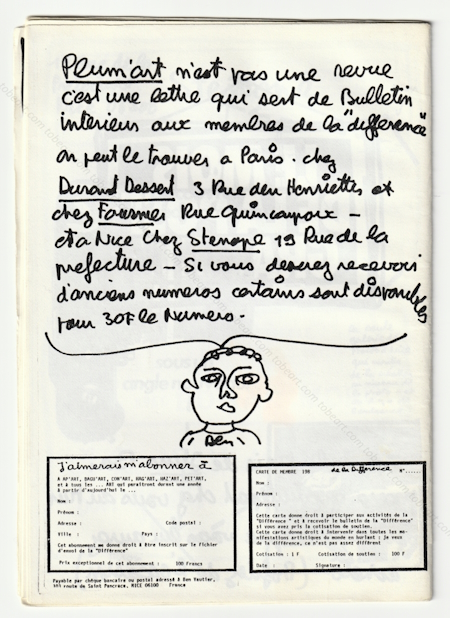 Plum'art n'est pas une revue
c'est une lettre qui sert de Bulletin
interieur aux membres de la "difference"
on peut le trouver a Paris. chez
Durand Dessert 3 Rue des Henriettes et
chez Fournier Rue Quincampoix -
et a Nice Chez Stenope 19 Rue de la
prefecture - Si vous desirez recevoir
d'anciens numeros certains sont disponibles
pour 30F le Numero.
Ben
J'aimerais m'abonner à
A AP'ART, BAOU'ART, CON'ART, HAG'ART, HAZ'ART, PET'ART,
et à tous les ... ART qui paraîtront durant une année
à partir d'aujourd'hui le ...
Nom :
Prénom :
Adresse : Code postal :
Ville : Pays :
Cet abonnement me donne droit à être inscrit sur le fichier
d'envoi de la "Différence"
Prix exceptionnel de cet abonnement : 100 Francs
Payable par chèque bancaire ou postal adressé à Ben Vautier,
103 route de Saint Pancrace, NICE 06100 France
CARTE DE MEMBRE 198 de la Difference n°......
Nom :
Prénom :
Adresse :
Cette carte donne droit à participer aux activités de la
"Différence" et à recevoir le bulletin de la "Différence"
si vous avez pris la cotisation de soutien.
Cette carte donne droit à intervenir dans toutes les ma-
nifestations artistiques du monde en hurlant : je veux
de la différence, ce n'est pas assez différent
Cotisation : 1 F Cotisation de soutien : 100 F
Date : Signature :